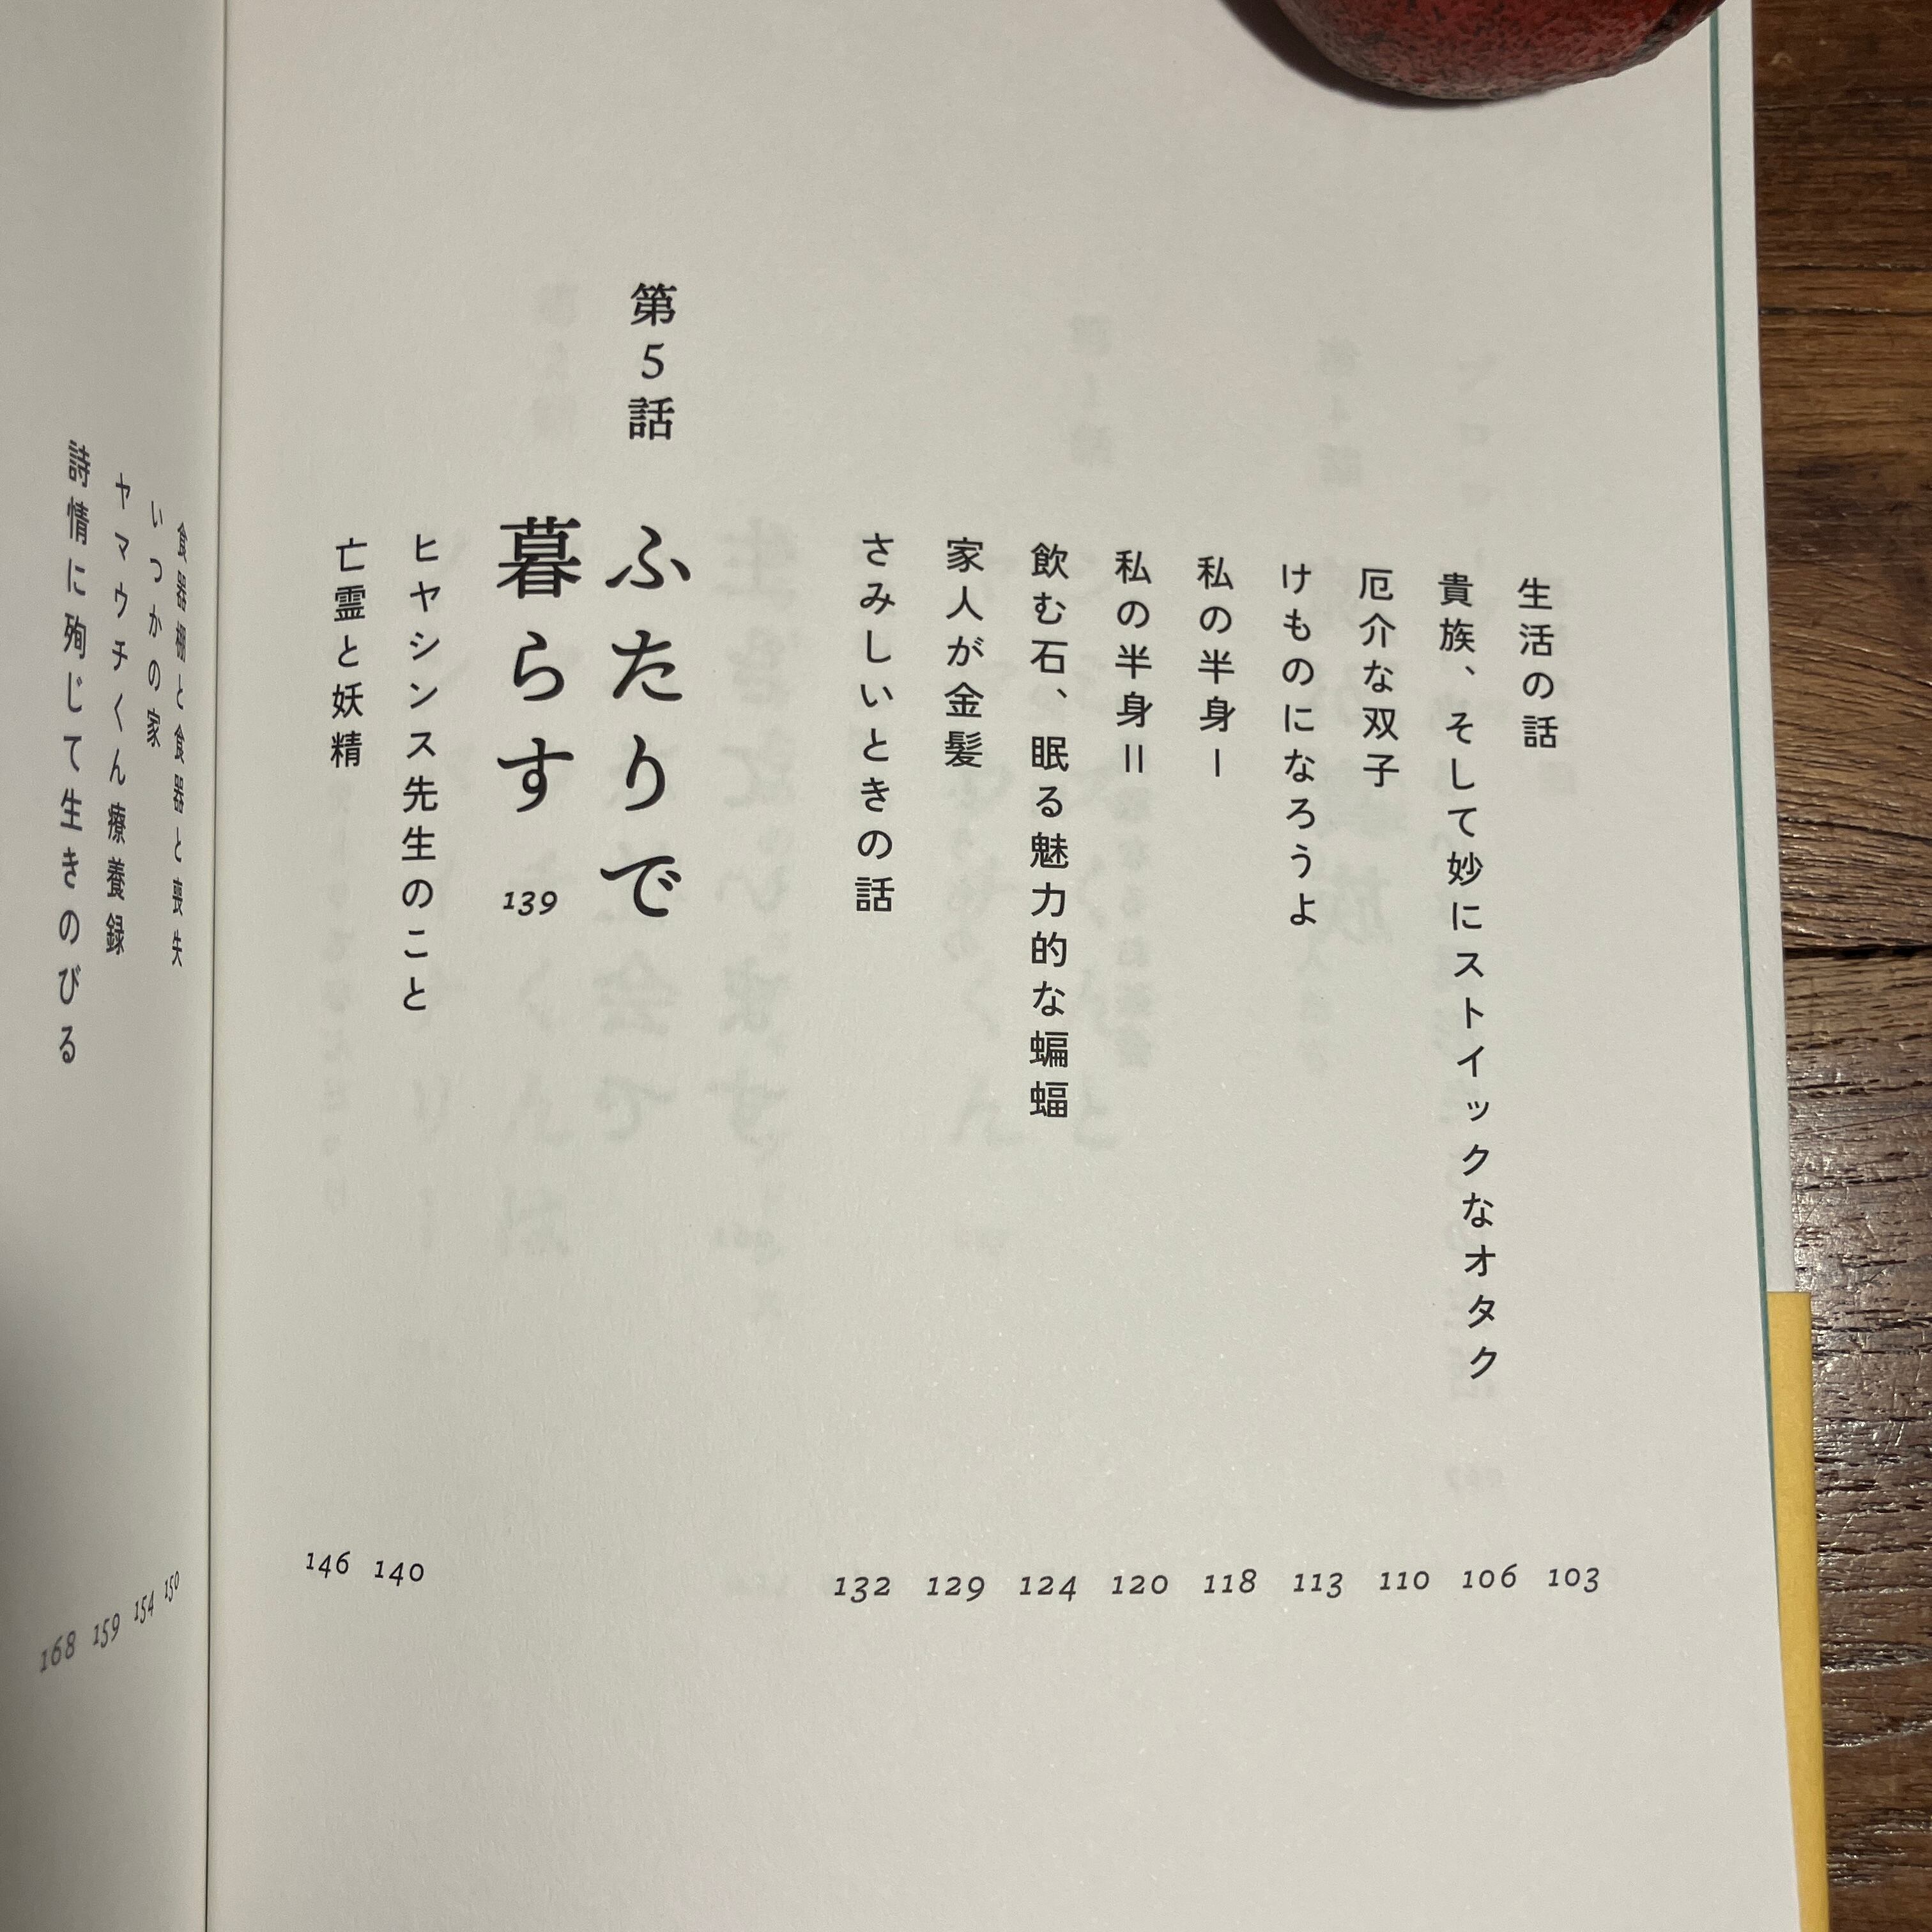 生活の話 103
貴族、そして妙にストイックなオタク 106
厄介な双子 110
けものになろうよ 113
私の半身Ⅰ 118
私の半身Ⅱ 120
飲む石、眠る魅力的な蝙蝠 124
家人が金髪 129
さみしいときの話 132
第5話 ふたりで
暮らす 139
ヒヤシンス先生のこと 140
亡霊と妖精 146
食器棚と食器と喪失 150
いつかの家 154
ヤマウチくん療養録 159
詩情に殉じて生きのびる 168